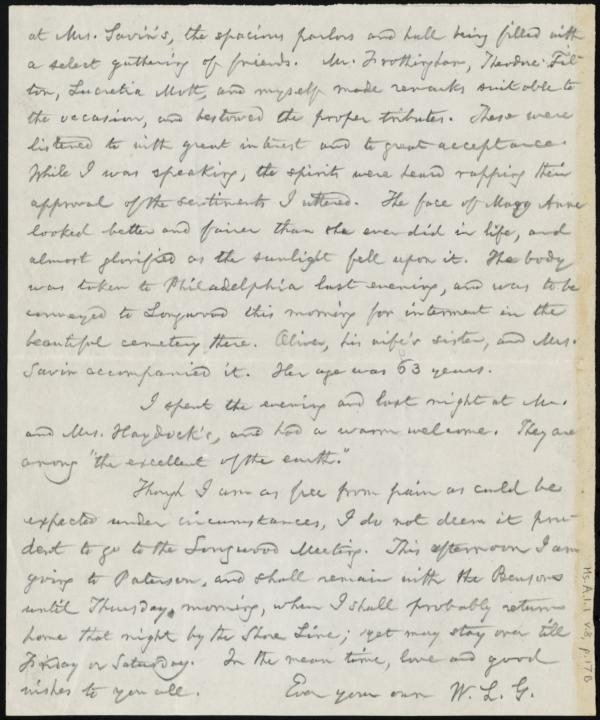 at Mrs. Savin's, the spacious parlors and hall being filled with
a select gathering of friends. Mr. Frothingham, Theodore Til-
ton, Lucretia Mott, and myself made remarks suitable to
the occasion, and bestowed the proper tributes. These were
listened to with great interest and to great acceptance.
While I was speaking, the spirits were heard rapping their
approval of the sentiments I uttered. The face of Mary Anne
looked better and fairer than she ever did in life, and
almost glorified as the sunlight fell upon it. The body
was taken to Philadelphia last evening, and was to be
conveyed to Longwood this morning for interment in the
beautiful cemetery there. Oliver, his wife's sister, and Mrs.
Savin accompanied it. Her age was 63 years.
I spent the evening and last night at Mr.
and Mrs. Haydock's, and had a warm welcome. They are
among "the excellent of the earth."
Though I am as free from pain as could be
expected under circumstances, I do not deem it pru-
dent to go to the Longwood Meeting. This afternoon I am
going to Paterson, and shall remain with the Bensons
until Thursday morning, when I shall probably return
home that night by the Shore Line; yet may stay over till
Friday or Saturday. In the mean time, love and good
wishes to you all. Ever your own W. L. G.
Ms. A. 1. 1 v. 8, p. 17 B